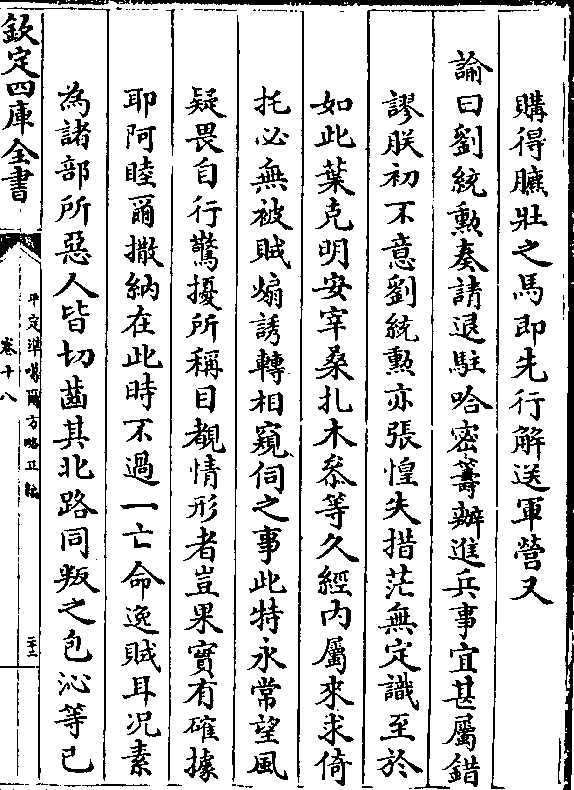 購得臕壯之馬即先行解送軍營又
諭曰劉統勳奏請退駐哈密籌辦進兵事宜甚屬錯
謬朕初不意劉統勳亦張惶失措茫無定識至於
如此葉克明安宰桑扎木叅等久經内屬來求倚
托必無被賊煽誘轉相窺伺之事此特永常望風
疑畏自行驚擾所稱目覩情形者豈果實有確據
耶阿睦爾撒納在此時不過一亡命逸賊耳况素
為諸部所惡人皆切齒其北路同叛之包沁等已
欽定四庫全書
平定凖噶爾方略正編
卷十八
二十二